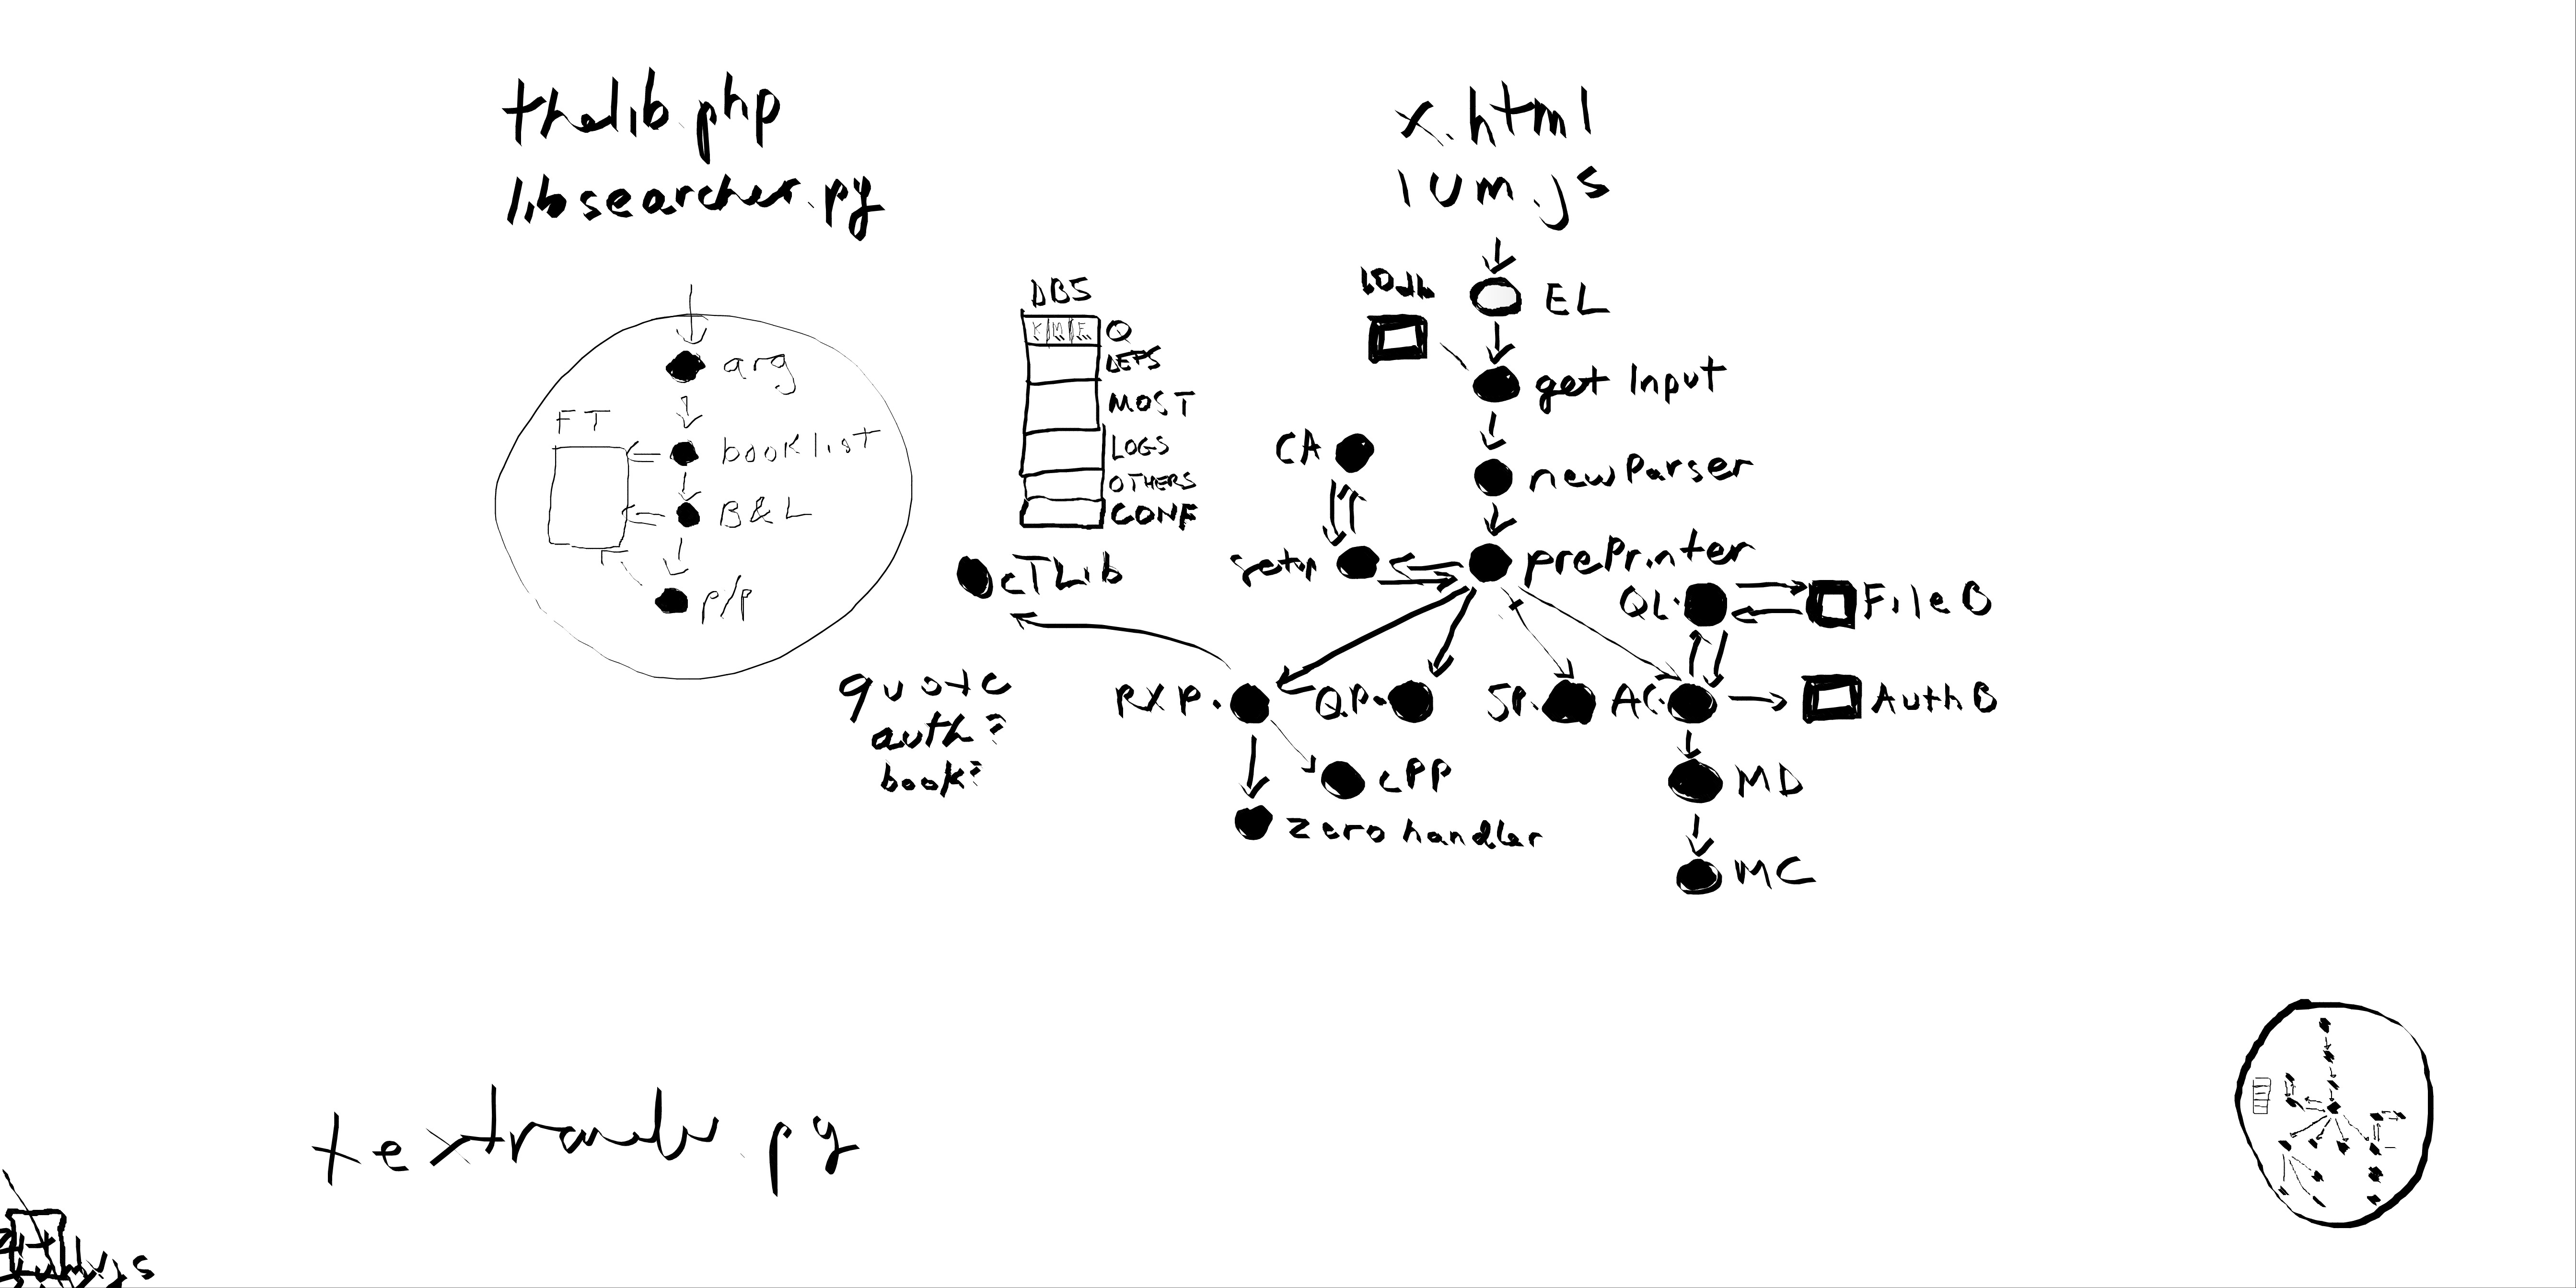 thelib.php
libsearcher.py
arg
FT
booklist
B&L
p/p
DBS
K M F Q
DEFS
MOST
LOGS
OTHERS
CONF
cTLib
quote
auth?
book?
x.html
lum.js
EL
get Input
CA
newParser
setup
prePrinter
QL.
FileB
RXP.
Q.P.
SP.
AC.
AuthB
cPP
MD
zero handler
MC